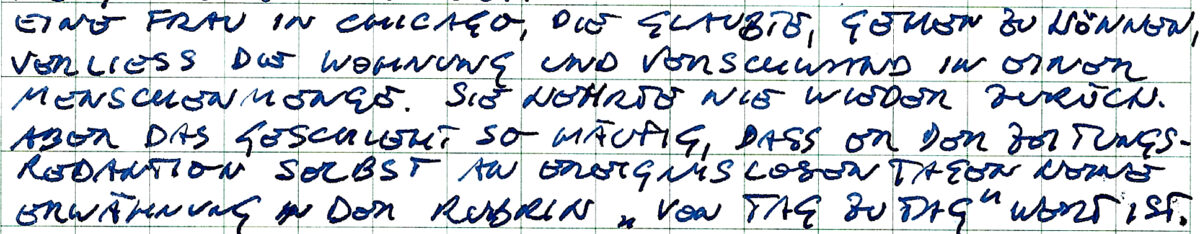 EINE FRAU IN CHICAGO, DIE GLAUBTE, GEHEN ZU KÖNNEN,
VERLIESS DIE WOHNUNG UND VERSCHWAND IN EINER
MENSCHENMENGE. SIE KEHRTE NIE WIEDER ZURÜCK.
ABER DAS GESCHIEHT SO HÄUFIG, DASS ER DER ZEITUNGS-
REDAKTION SELBST AN EREIGNISLOSEN TAGEN KEINE
ERWÄHNUNG IN DER RUBRIK „VON TAG ZU TAG“ WERT IST.